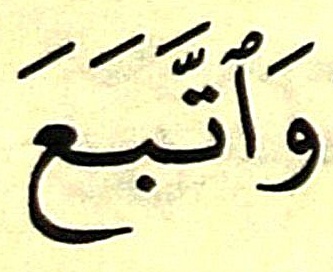 وَٱتَّبَعَ